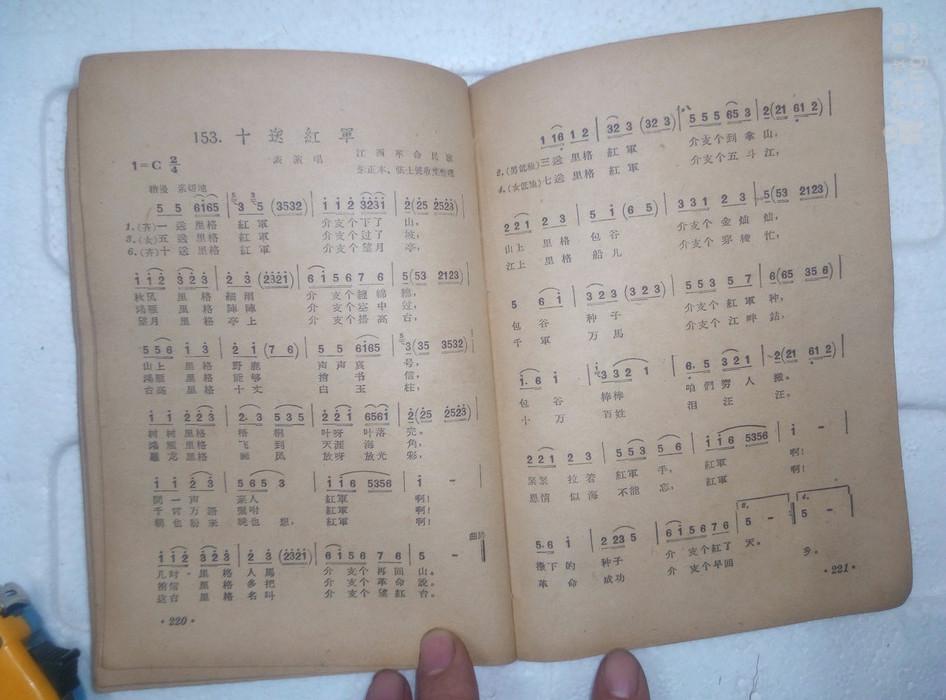 153. 十送紅軍
1=C 2/4
表演唱
江西革命民歌
稍慢 亲切地
5 5 6165 | 3 5 (3532) | 1 1 2 3231 | 2(25 2523) |
1.(齐)一送里格 紅軍 介支个下了 山，
3.(女)五送里格 紅軍 介支个过了 坡，
6.(齐)十送里格 紅軍 介支个望月 亭，
1 1 2 3 2 3 | 2 3 (2321) | 6 1 5 6 7 6 | 5(53 2123) |
秋风 里格 細雨 介 支个纏綿 綿，
鴻雁 里格 陣陣 介 支个空中 过，
望月 里格 亭上 介 支个搭高 台，
5 5 6 1 3 | 2 1 (7 6) | 5 5 6165 | 3(35 3532) |
山上 里格 野鹿 声声哀 号，
鴻雁 里格 能够 捎书 信，
台高 里格 十丈 白玉 柱，
1 1 2 2 3 | 2· 3 5 3 5 | 2 2 1 6561 | 2(25 2523) |
树树里格 梧桐 叶呀叶落 完。
鴻雁里格 飞到 天涯海 角，
雕龙里格 画凤 放呀放光 彩，
1 1 2 3 | 5 6 5 3 | 1 1 6 5356 | 1 - |
問一声 亲人 紅軍 啊！
千言万語 嘱咐 紅軍 啊！
朝也盼来 晚也想， 紅軍 啊！
曲終
1 1 2 3 2 3 | 2 3 (2321) | 6 1 5 6 7 6 | 5 -
几时 里格 人馬 介 支个再回 山。
捎信 里格 多把 介 支个革命 說。
这台 里格 名叫 介 支个望紅 台。
·220·
1 16 1 2 | 32 3 (32 3) | 5 5 5 65 3 | 2(21 61 2) |
2.(男低領)三送里格 紅軍 介支个到拿 山，
4.(女低領)七送里格 紅軍 介支个五斗 江，
2 2 1 2 3 | 5 1 (6 5) | 3 3 1 2 3 | 5(53 2123) |
山上 里格 包谷 介支个 金灿 灿，
江上 里格 船儿 介支个 穿梭 忙，
5 6 1 | 3 2 3 (32 3) | 5 5 3 5 7 | 6(65 35 6) |
包谷 种子 介支个紅軍 种，
千軍 万馬 介支个江畔 站，
1· 6 1 | 3 3 2 1 | 6· 5 3 2 1 | 2(21 61 2) |
包谷 棒棒 咱們穷人 搬。
十万 百姓 泪汪 汪。
2 2 1 2 3 | 5 5 3 5 6 | 1 1 6 5356 | 1 - |
紧紧 拉着 紅軍手， 紅軍 啊！
恩情 似海 不能忘， 紅軍 啊！
5· 6 1 | 2 23 5 | 6 1 5 6 7 6 | 5 - | 5 - |
撒下的 种子 介 支个紅了 天。
革命 成功 介 支个早回 乡。
·221·